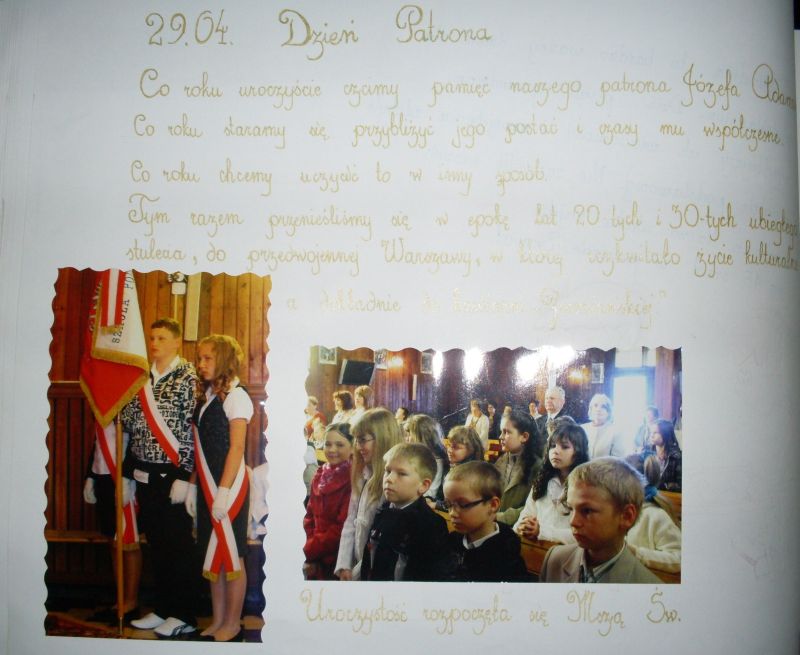 29.04. Dzień Patrona
Co roku uroczyście czcimy pamięć naszego patrona Józefa Adama
Co roku staramy się przybliżyć jego postać i czasy mu współczesne.
Co roku chcemy uczynić to w inny sposób.
Tym razem przenieśliśmy się w epokę lat 20-tych i 30-tych ubiegłego
stulecia, do przedwojennej Warszawy, w której rozkwitało życie kulturalne
a dokładnie do "Ziemiańskiej"
SZKOŁA PO
Uroczystość rozpoczęła się Mszą Św.